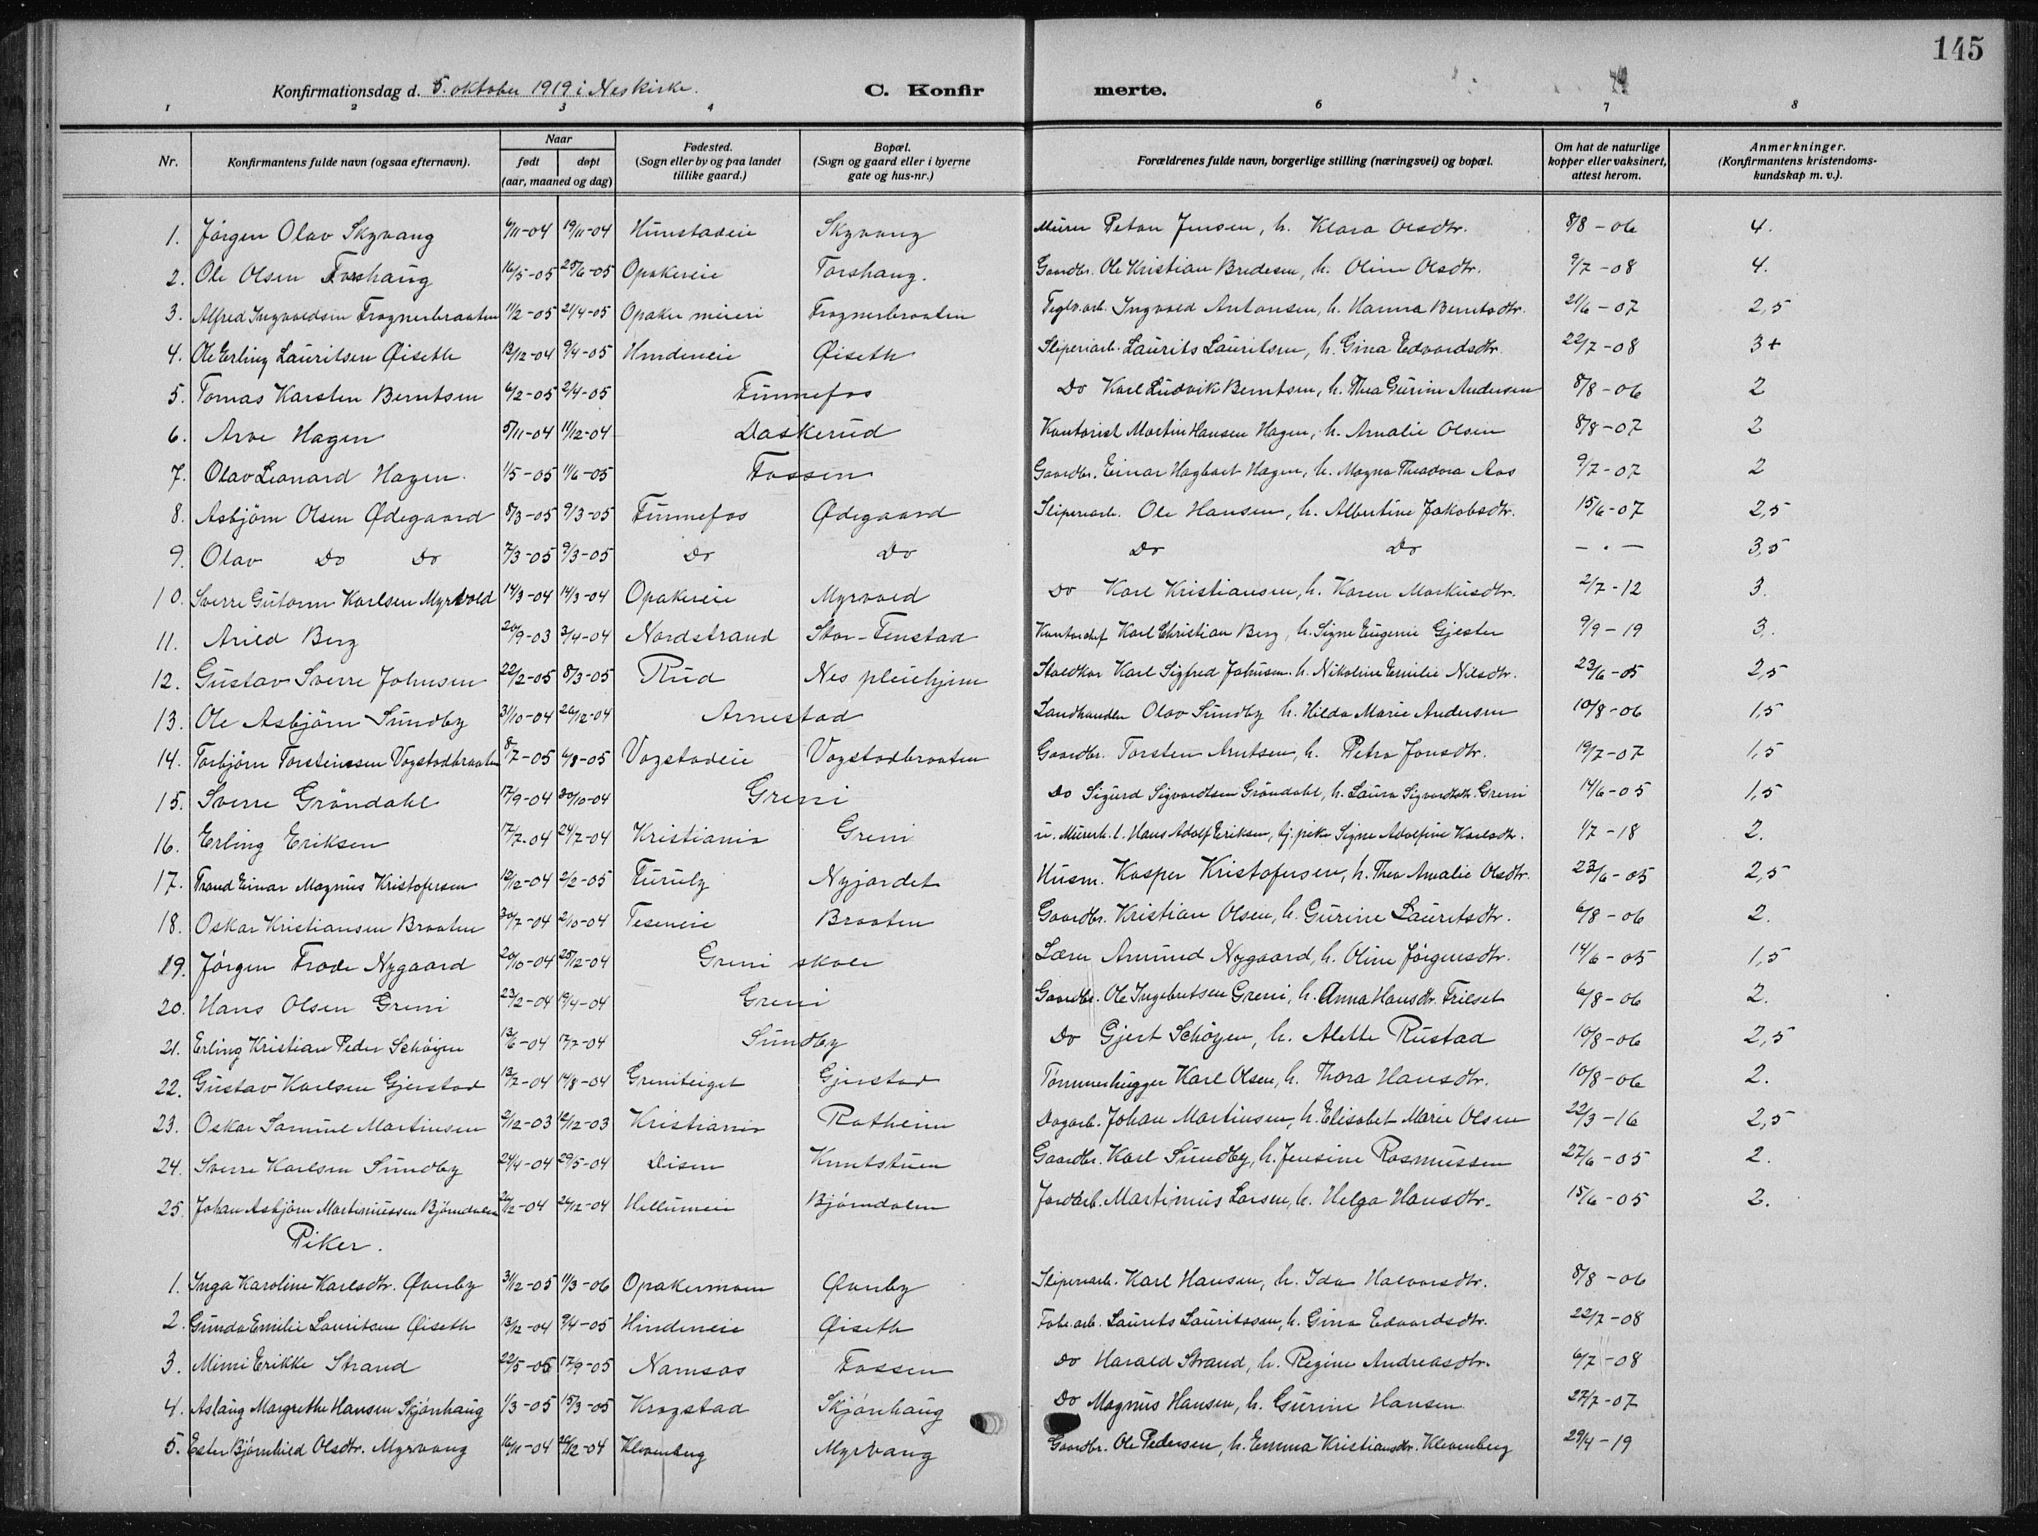 145
Konfirmationsdag d. 5. oktober 1919 i Nes kirke. C. Konfirmerte.
1 2 3 4 6 7 8
Nr. Konfirmantens fulde navn (ogsaa efternavn). Naar født døpt (aar, maaned og dag) Fødested. (Sogn eller by og paa landet tillike gaard.) Bopæl. (Sogn og gaard eller i byerne gate og hus-nr.) Forældrenes fulde navn, borgerlige stilling (næringsvei) og bopæl. Om hat de naturlige kopper eller vaksinert, attest herom. Anmerkninger. (Konfirmantens kristendomskundskap m. v.).
1. Jørgen Olav Skyvang 6/11-04 19/11-04 Hunstadeie Skyvang Murer Petan Jensen, h. Klara Olsdtr. 8/8-06 4.
2. Ole Olsen Torshaug 16/5-05 25/6-05 Opakereie Torshaug. Gaardbr. Ole Kristian Bredesen, h. Oline Olsdtr. 9/7-08 4.
3. Alfred Ingvaldsen Frognerbraaten 11/2-05 21/4-05 Opaker meieri Frognerbraaten Teglv.arb. Ingvald Antonsen, h. Hanna Berntsdtr. 21/6-07 2,5
4. Ole Erling Lauritsen Øiseth 13/12-04 9/4-05 Hindeneie Øiseth Sliperiarb. Laurits Lauritsen, h. Gina Edvardsdtr. 22/7-08 3+
5. Tomas Karsten Berntsen 6/2-05 2/4-05 Funnefos Do Karl Ludvik Berntsen, h. Thea Gurine Andersen 8/8-06 2
6. Arve Hagen 5/11-04 11/12-04 Daskerud Kontorist Martin Hansen Hagen, h. Amalie Olsen 8/8-07 2
7. Olav Leonard Hagen. 1/5-05 11/6-05 Fossen Gaardbr. Einar Hagbart Hagen, h. Magna Theodora Aas 9/7-07 2
8. Asbjørn Olsen Ødegaard 8/3-05 9/3-05 Funnefos Ødegaard Sliperiarb. Ole Hansen, h. Albertine Jakobsdtr. 15/6-07 2,5
9. Olav Do Do 7/3-05 9/3-05 Do Do Do Do - . - 3,5
10. Sverre Gutorm Karlsen Myrvold 14/3-04 14/3-04 Opakereie Myrvold Do Karl Kristiansen, h. Karen Markusdtr. 2/7-12 3.
11. Arild Berg 20/9-03 3/4-04 Nordstrand Stor-Fenstad Kontorchef Karl Christian Berg, h. Signe Eugenie Gjester 9/9-19 3.
12. Gustav Sverre Johnsen 22/2-05 8/3-05 Rud Nes pleiehjem Staldkar Karl Sigfred Johnsen. h. Nikoline Emilie Nilsdtr. 23/6-05 2,5
13. Ole Asbjørn Sundby 31/10-04 26/12-04 Arnestad Landhandler Olav Sundby h. Hilda Marie Andersen 10/8-06 1,5
14. Torbjørn Torsteinssen Vogstadbraaten 8/7-05 6/8-05 Vogstadeie Vogstadbraaten Gaardbr. Torsten Arntsen, h. Petra Jonsdtr. 19/7-07 1,5
15. Sverre Grøndahl 17/9-04 30/10-04 Greni Do Sigurd Sigvardtsen Grøndahl, h. Laura Sigvardtsdtr. Greni 14/6-05 1,5
16. Erling Eriksen 17/7-04 24/7-04 Kristiania Greni u. Murerh. l. Hans Adolf Eriksen, tj. pike Signe Adolfine Karlsdtr. 1/7-18 2.
17. Trond Einar Magnus Kristofersen 12/12-04 2/2-05 Furuly Nyjordet Husm. Kasper Kristofersen, h. Thea Amalie Olsdtr. 23/6-05 2,5
18. Oskar Kristiansen Braaten 30/7-04 2/10-04 Teseneie Braaten Gaardbr. Kristian Olsen, h. Gurine Lauritsdtr. 6/8-06 2.
19. Jørgen Frode Nygaard 20/10-04 25/12-04 Greni skole Lærer Amund Nygaard, h. Oline Jørgensdtr. 14/6-05 1,5
20. Hans Olsen Greni 23/2-04 19/4-04 Greni Gaardbr. Ole Ingebretsen Greni, h. Anna Hansdtr. Frilset 6/8-06 2.
21. Erling Kristian Peder Schøyen 13/6-04 17/7-04 Sundby Do Gjert Schøyen, h. Alette Rustad 10/8-06 2,5
22. Gustav Karlsen Gjerstad 13/7-04 14/8-04 Greniteiget Gjerstad Tømmerhugger Karl Olsen, h. Thora Hansdtr. 10/8-06 2.
23. Oskar Samuel Martinsen 2/12-03 12/12-03 Kristiania Rotheim Dagarb. Johan Martinsen, h. Elisabet Marie Olsen 22/3-16 2,5
24. Sverre Karlsen Sundby 24/4-04 29/5-04 Disen Knutstuen Gaardbr. Karl Sundby, h. Jensine Rasmussen 27/6-05 2.
25. Johan Asbjørn Martiniussen Bjørndalen 20/12-04 26/12-04 Hellumeie Bjørndalen Jordarb. Martinius Larsen, h. Helga Hansdtr. 15/6-05 2.
Piker.
1. Inga Karoline Karlsdtr. Øvreby 31/12-05 11/3-06 Opakermoen Øvreby Sliperiarb. Karl Hansen, h. Ida Halvorsdtr. 8/8-06
2. Gunda Emilie Lauritsen Øiseth 13/12-04 9/4-05 Hindeneie Øiseth Fabr.arb. Laurits Lauritssen, h. Gina Edvardsdtr. 22/7-08
3. Mimi Erikke Strand 22/5-05 17/9-05 Namsos Fossen Do Harald Strand, h. Regine Andreasdtr. 6/7-08
4. Aslaug Margrethe Hansen Skjønhaug 1/3-05 15/3-05 Krogstad Skjønhaug Do Magnus Hansen, h. Gurine Hansen 27/7-07
5. Ester Bjørnhild Olsdtr. Myrvang 16/11-04 26/12-04 Klevenberg Myrvang Gaardbr. Ole Pedersen, h. Emma Kristiansdtr. Klevenberg 29/4-19